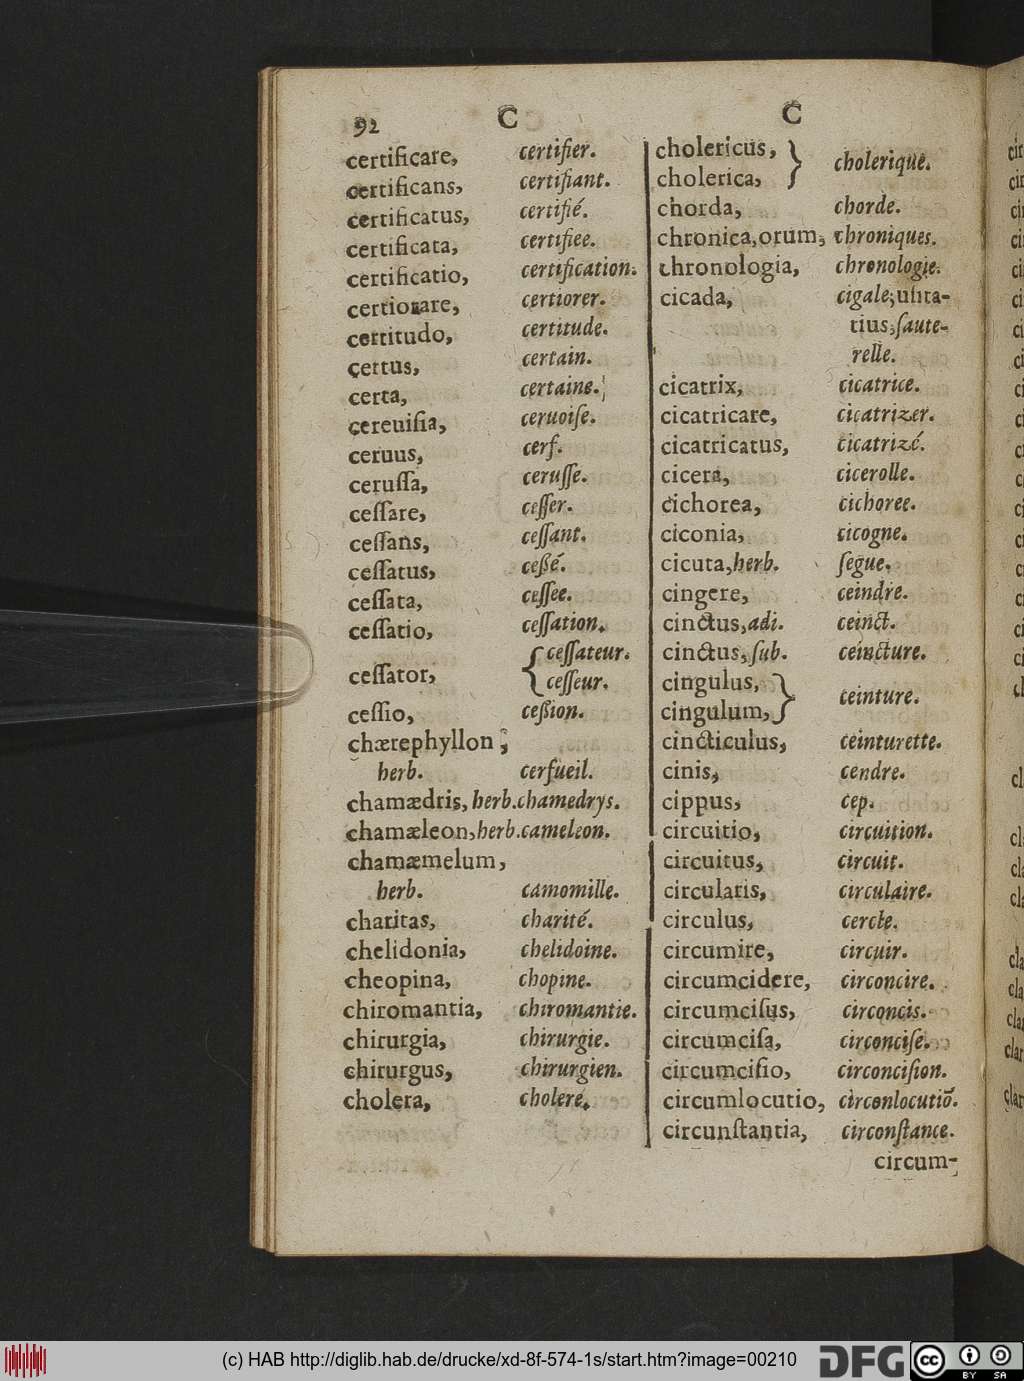 92 C C
certificare, certifier.
certificans, certifiant.
certificatus, certifié.
certificata, certifiee.
certificatio, certification.
certiorare, certiorer.
certitudo, certitude.
certus, certain.
certa, certaine.
cereuisia, ceruoiſe.
ceruus, cerf.
ceruſſa, ceruſſe.
ceſſare, ceſſer.
ceſſans, ceſſant.
ceſſatus, ceßé.
ceſſata, ceſſee.
ceſſatio, ceſſation.
ceſſator, { ceſſateur.
ceſſeur.
ceſſio, ceßion.
chærephyllon,
herb. cerfueil.
chamædris, herb. chamedrys.
chamæleon, herb. cameleon.
chamæmelum,
herb. camomille.
charitas, charité.
chelidonia, chelidoine.
cheopina, chopine.
chiromantia, chiromantie.
chirurgia, chirurgie.
chirurgus, chirurgien.
cholera, cholere.
cholericus, }
cholerica, } cholerique.
chorda, chorde.
chronica, orum, chroniques.
chronologia, chronologie.
cicada, cigale; uſita-
tius, ſaute-
relle.
cicatrix, cicatrice.
cicatricare, cicatrizer.
cicatricatus, cicatrizé.
cicera, cicerolle.
cichorea, cichoree.
ciconia, cicogne.
cicuta, herb. ſegue.
cingere, ceindre.
cinctus, adi. ceinct.
cinctus, ſub. ceincture.
cingulus, }
cingulum, } ceinture.
cincticulus, ceinturette.
cinis, cendre.
cippus, cep.
circuitio, circuition.
circuitus, circuit.
circularis, circulaire.
circulus, cercle.
circumire, circuir.
circumcidere, circoncire.
circumciſus, circoncis.
circumciſa, circonciſe.
circumciſio, circonciſion.
circumlocutio, circonlocutiõ.
circunſtantia, circonſtance.
circum-
(c) HAB http://diglib.hab.de/drucke/xd-8f-574-1s/start.htm?image=00210
DFG
cc BY SA